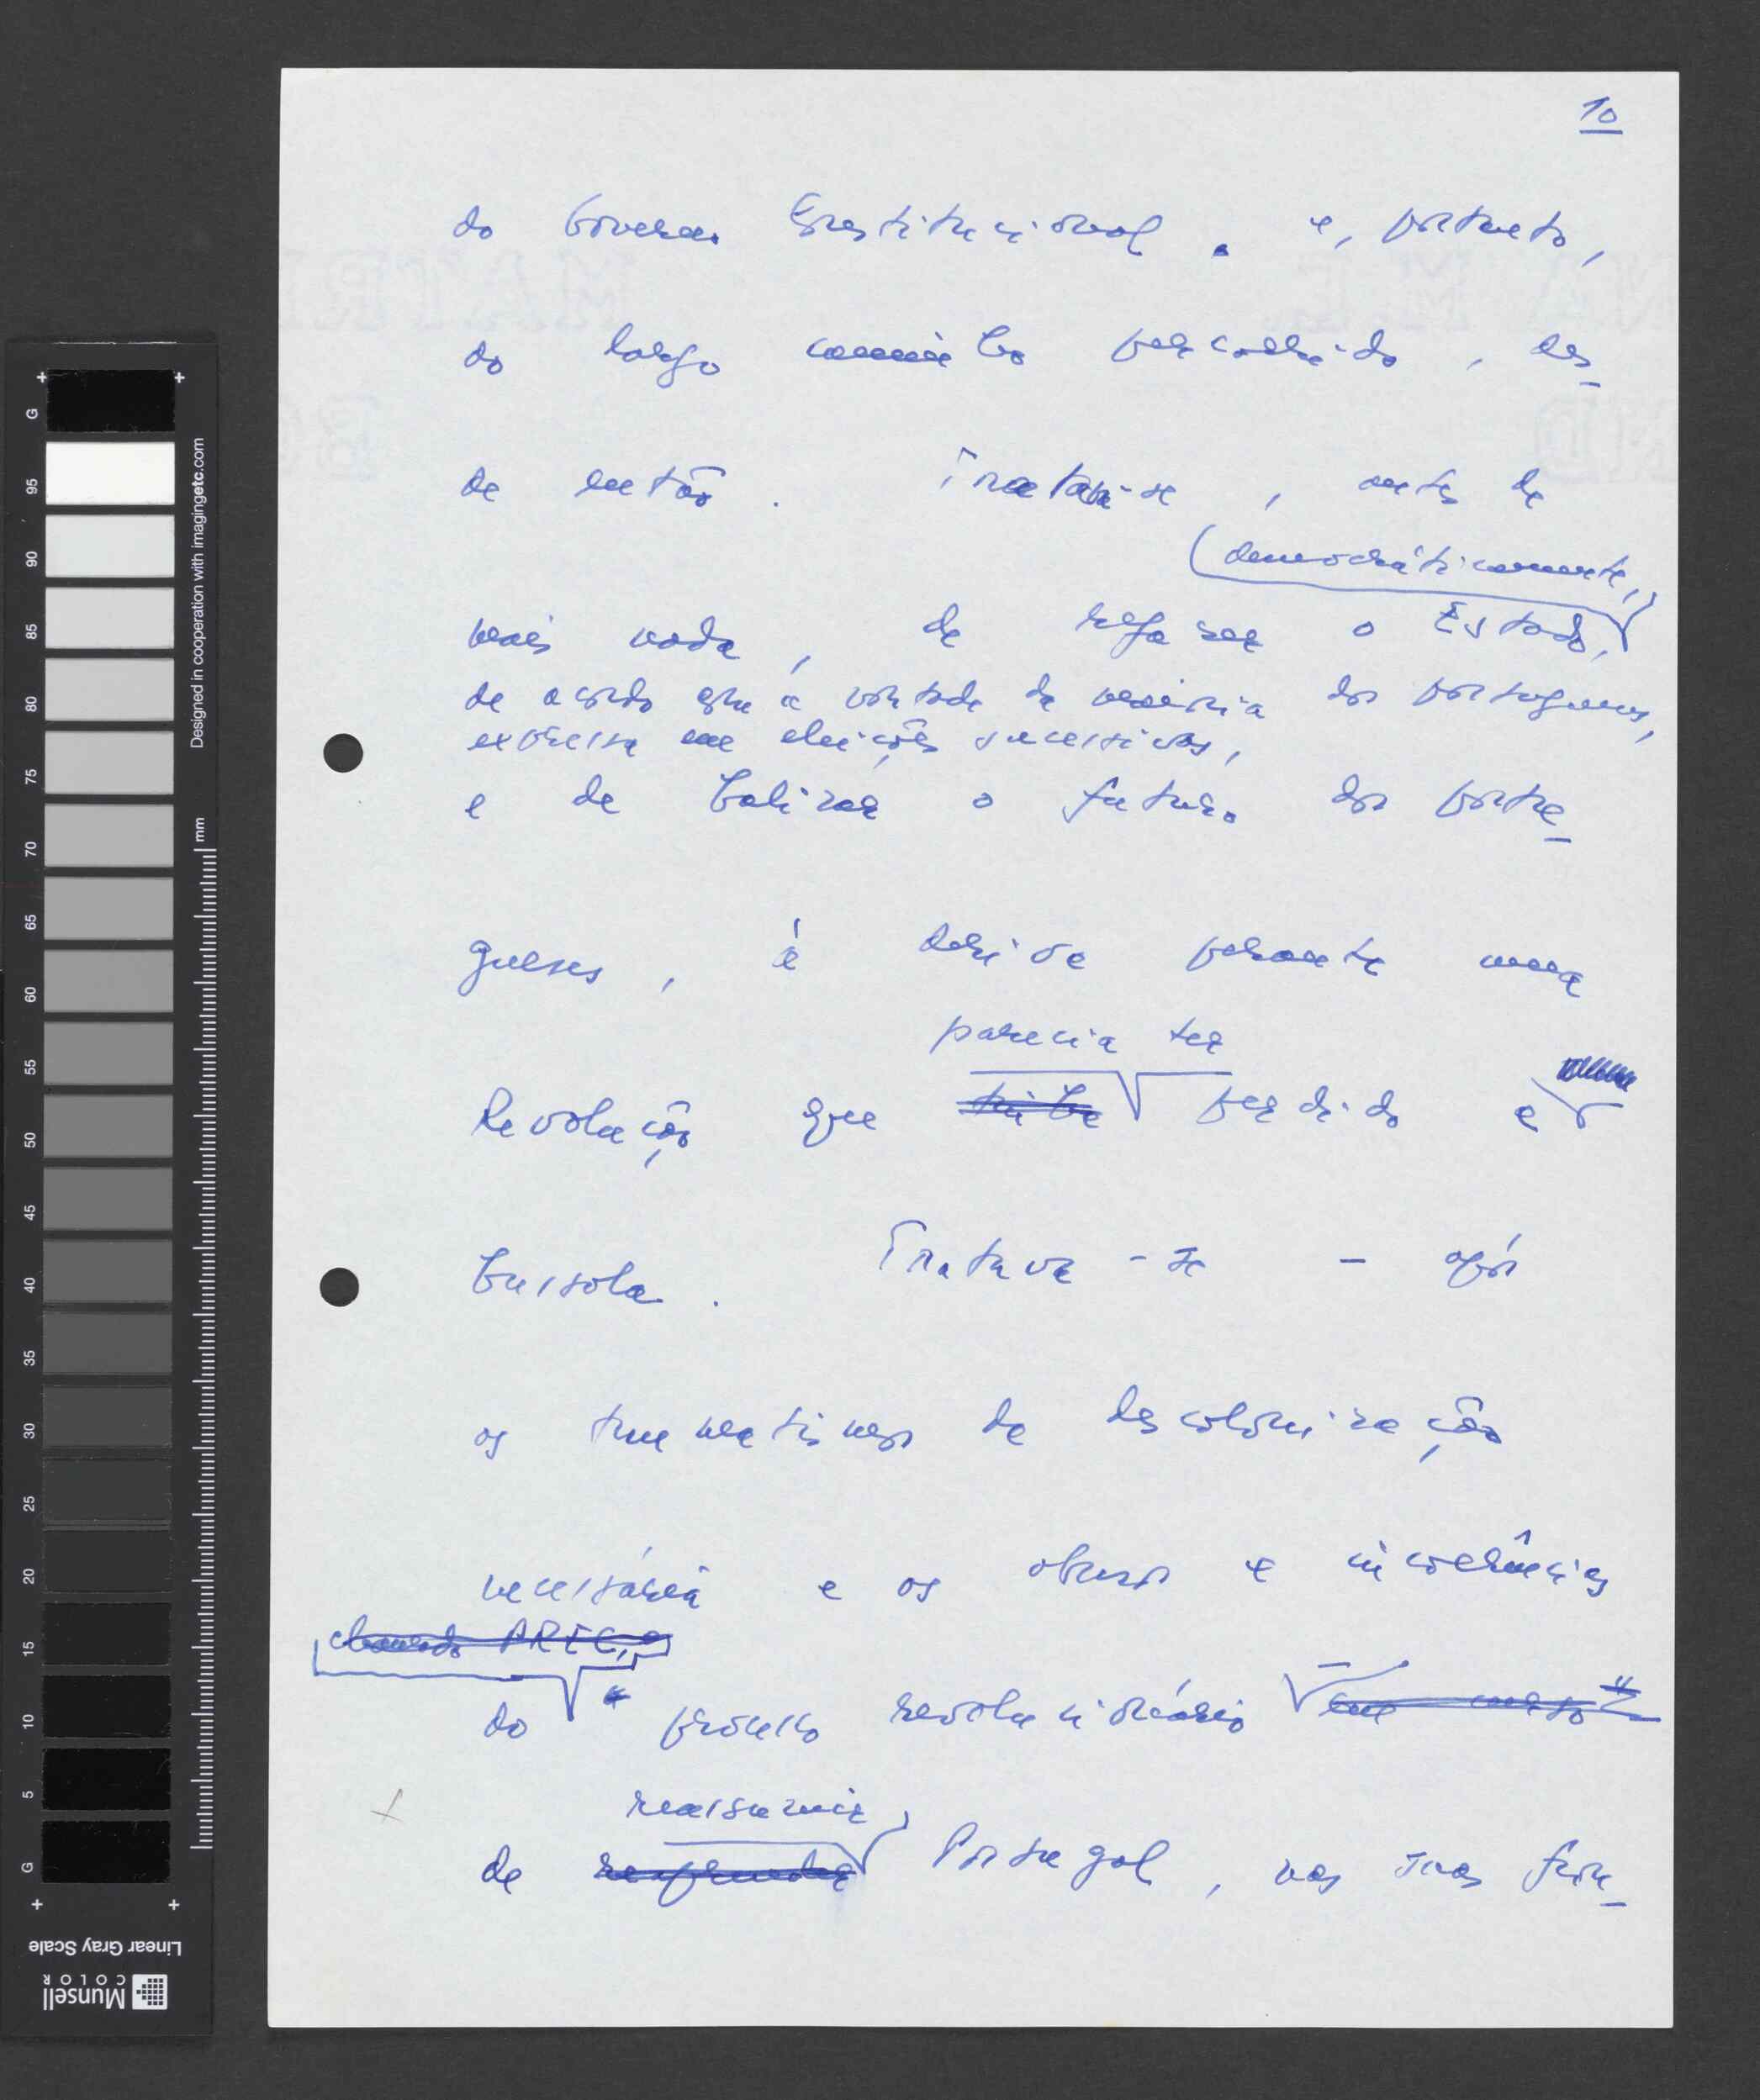 10
do Governo Constitucional. e, portanto,
do longo caminho percorrido, des_
de então. Tratava-se, antes de
(democraticamente,)
mais nada, de refazer o Estado,
de acordo com a vontade da maioria dos portugueses,
expressa em eleições sucessivas,
e de balizar o futuro dos portu_
gueses, à deriva perante uma
parecia ter
Revolução que tinha perdido a
bussola. Tratava-se - após
os traumatismos da descolonização
necessária e os abusos e incoerências
chamado PREC, o
do processo revolucionário em curso"
reassumir
de Portugal, nas suas fron_
G 95 90 85 80 75 70 65 60 55 50 45 40 35 30 25 20 15 10 5 G
Designed in cooperation with imagingetc.com
mm
Linear Gray Scale
Munsell
COLOR